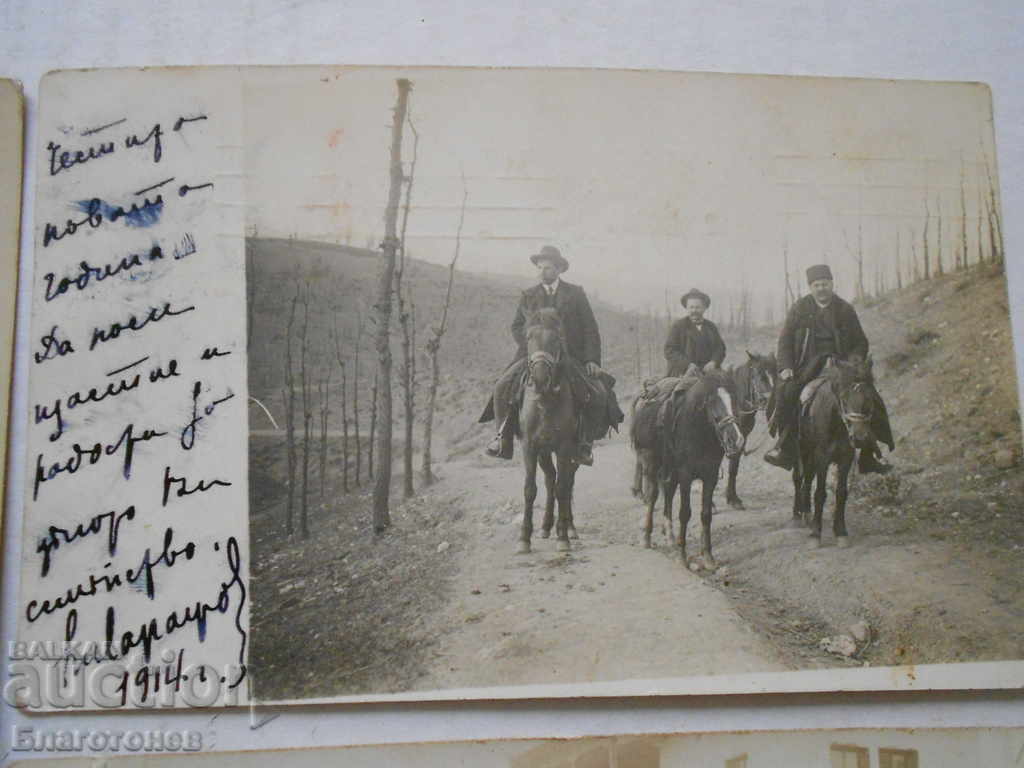 Честита
новата
година
Да носи
щастие и
радост за
цяло Ви
семейство.
1914.г.
BALKAN
auction
Благотонев